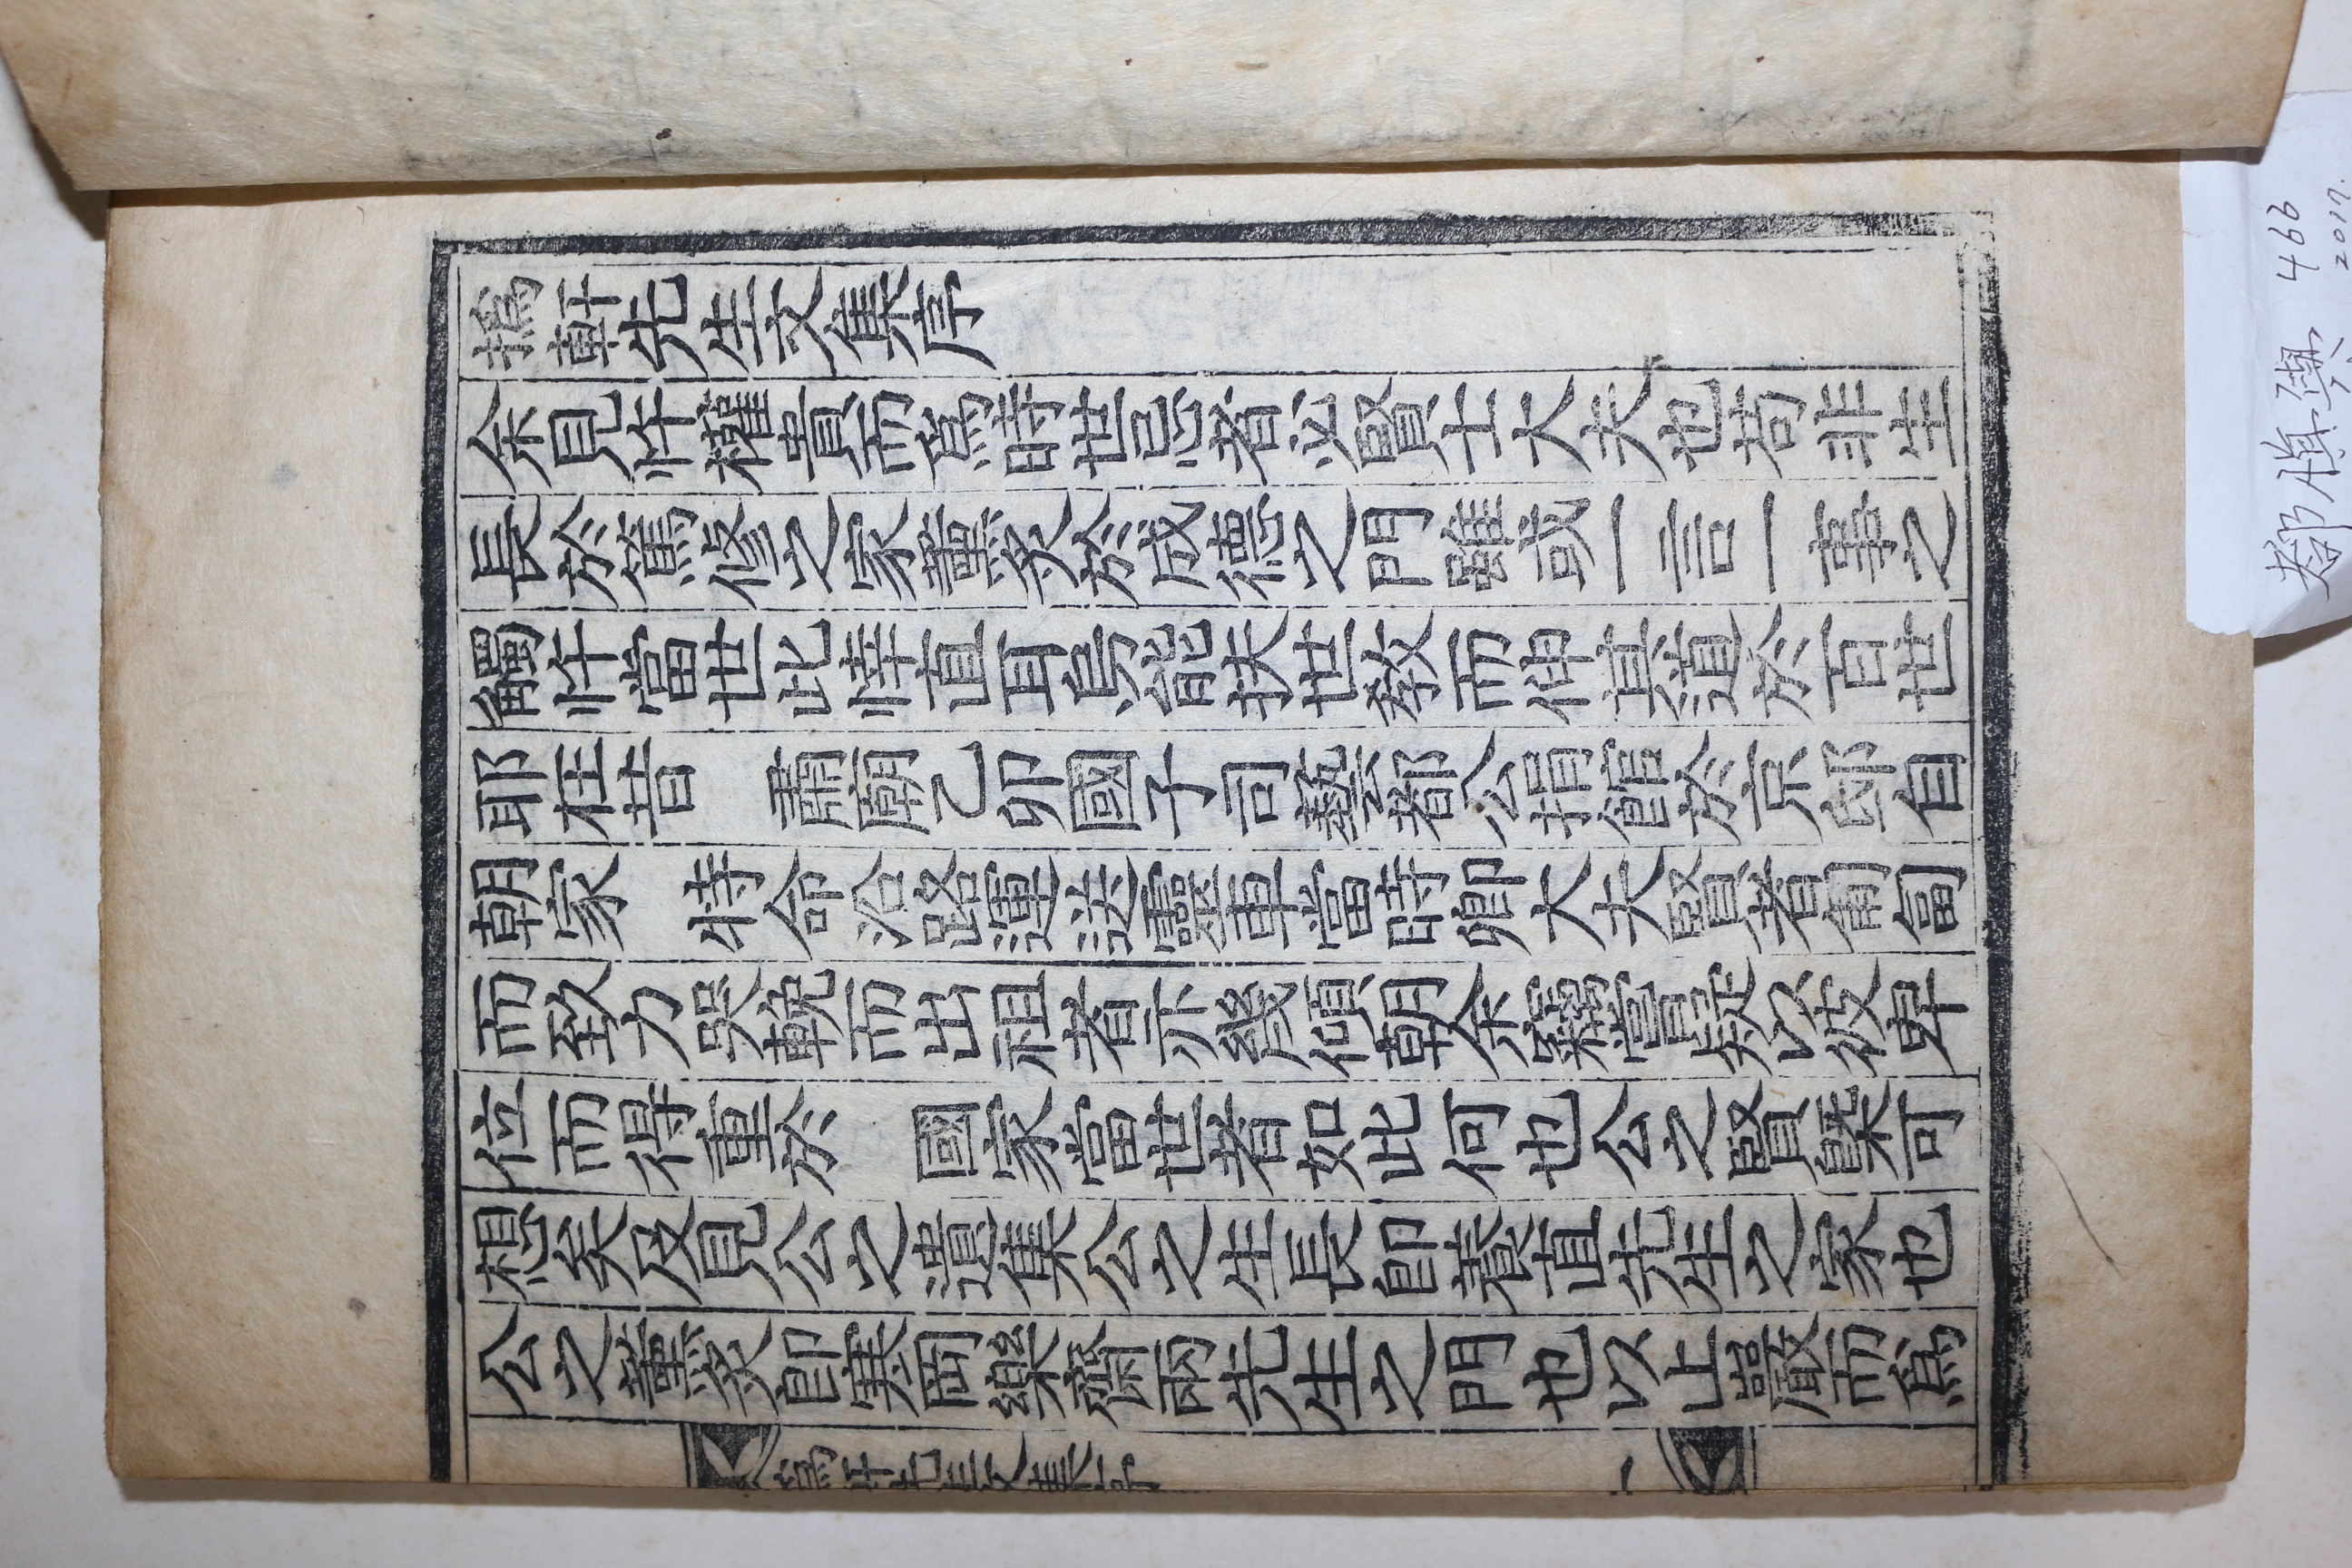 撝軒先生文集序
余見忤權貴而爲時世忌者必賢士大夫也苟非生
長於舊修之家薰炙於成德之門雖或一言一事之
觸忤當世此悻直耳烏能扶世敎而伸其道於百世
耶在昔 肅廟乙卯國子司藝都公捐館於京邸自
朝家 特命沿路運送靈車當時卿大夫賢者匍匐
而致力哭輓而出祖者亦幾傾朝余竊嘗疑以彼卑
位而得重於 國家當世者如此何也公之賢槩可
想矣及見公之遺集公之生長卽養直先生之家也
公之薰炙卽寒岡樂齋兩先生之門也以止嚴而爲
撝軒先生文集序 一
都愼與 466
2017.